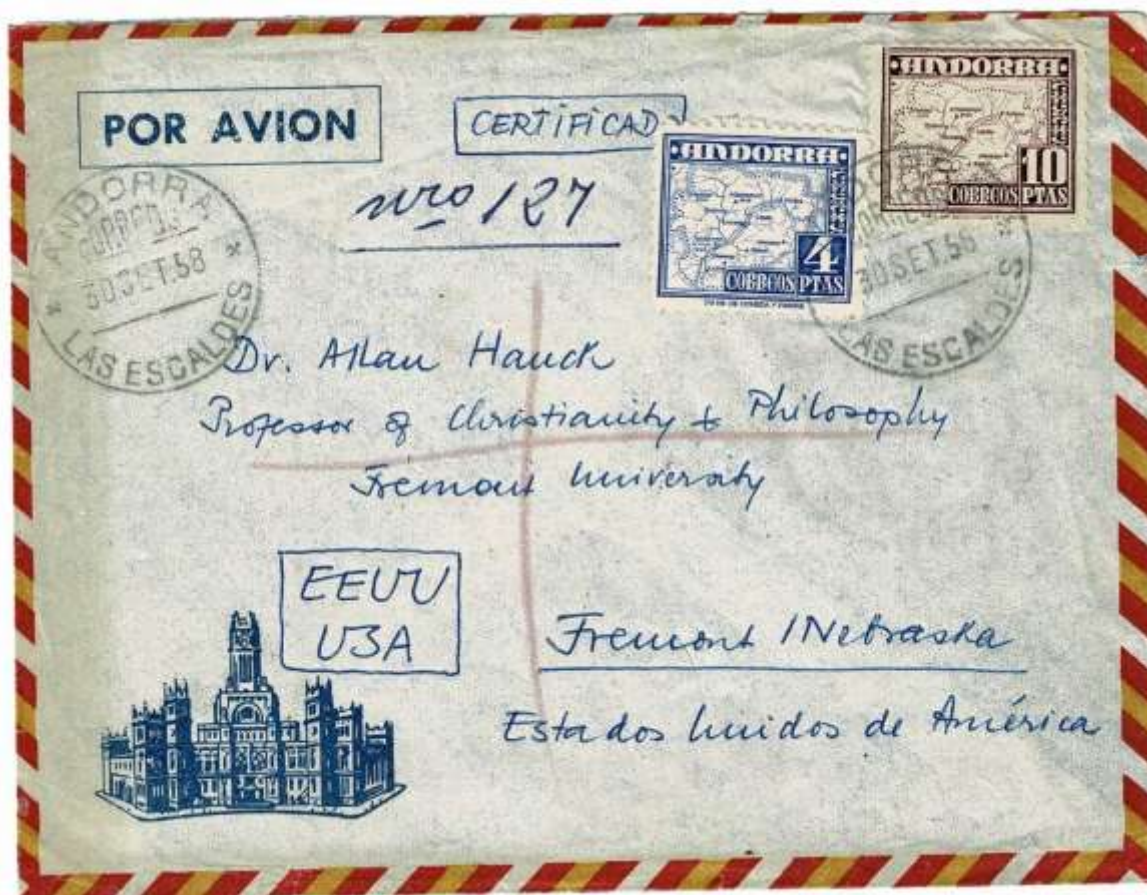 POR AVION
CERTIFICAD
nro 127
ANDORRA
CORREOS
4 PTAS
ANDORRA
CORREOS
10 PTAS
ANDORRA
CORREOS
30.SET.58
LAS ESCALDES
CORREOS
30.SET.58
LAS ESCALDES
Dr. Allan Hauck
Professor of Christianity & Philosophy
Fremont University
EEUU
USA
Fremont / Nebraska
Estados Unidos de América